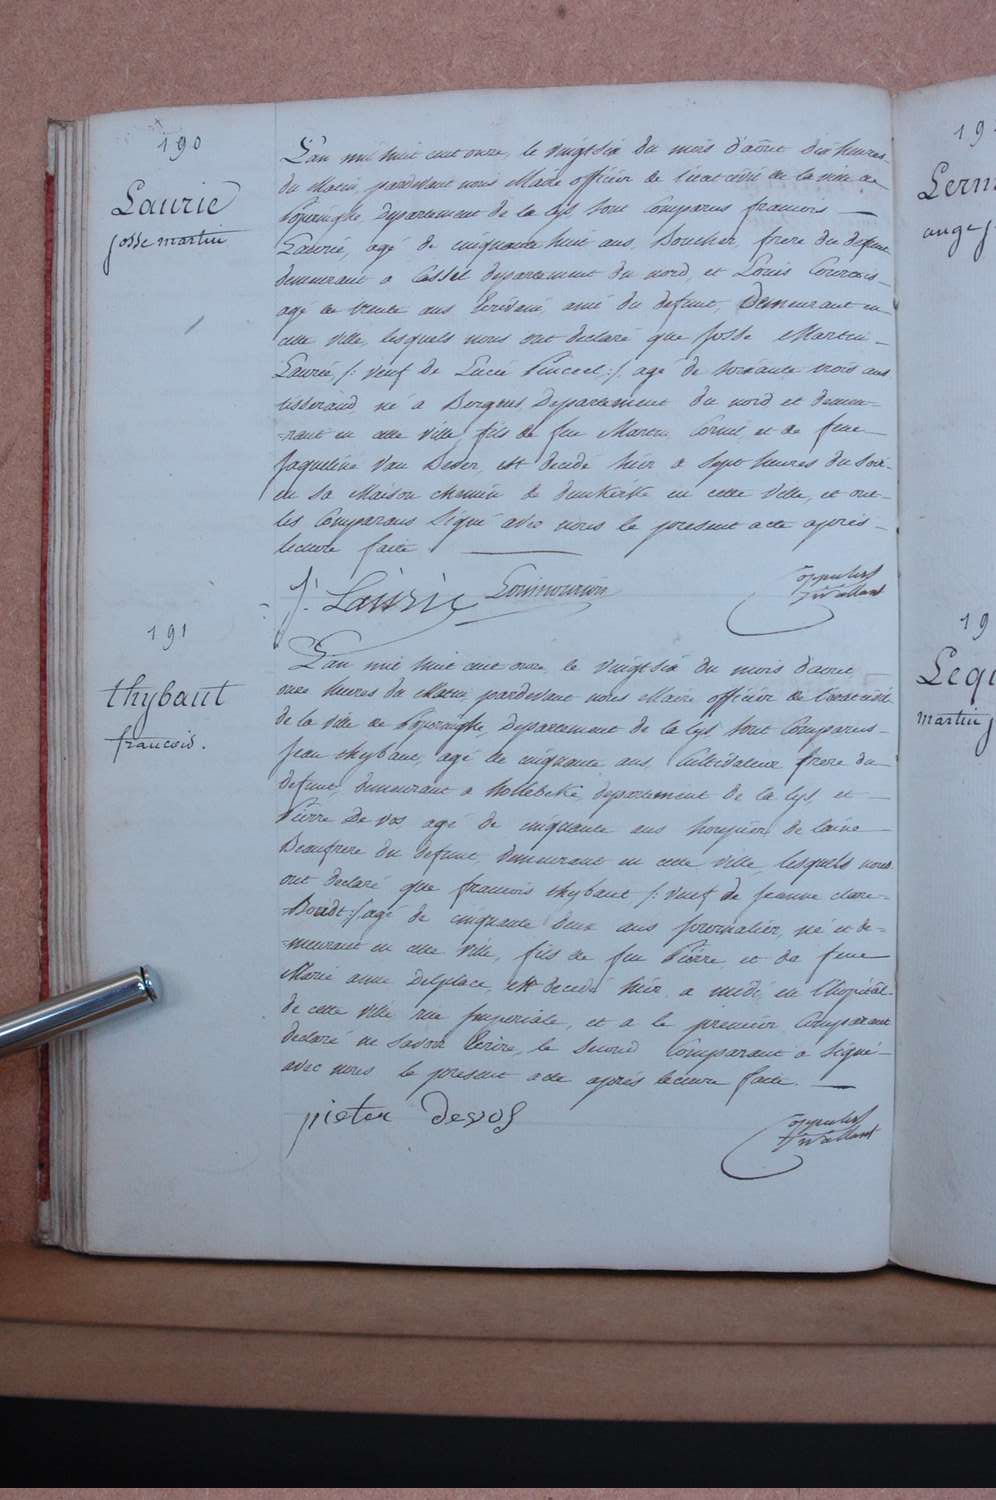 190
Laurié
josse martin
L'an mil huit cent onze, le vingtsix du mois d'août dix heures
du Matin, pardevant nous Maire officier de l'état civil de la ville de
Poperinghe, Departement de la Lys, sont Comparus francois
Laurié, agé de cinquante huit ans, Boucher, frere du defunt
demeurant a Cassel departement du nord, et Louis
agé de trente ans Ecrivain, ami du defunt, Demeurant en
cette ville, lesquels nous ont declaré que Josse Martin
Laurié, /: veuf de Lucie :/ agé de soixante trois ans
tisserand, né a Bergues, Departement du nord et demeu-
-rant en cette ville, fils de feu Martin, et de feue
Jaqueline Van, est decedé hier a sept heures du soir
en sa Maison chemin de dunkerke en cette ville, et ont
les Comparans signé avec nous le present acte après
lecture faite
f. Laurié
191
thybaut
francois.
L'an mil huit cent onze, le vingtsix du mois d'aout
onze heures du Matin, pardevant nous Maire officier de l'état civil
de la ville de Poperinghe, Departement de la Lys, sont Comparus
Jean thybaut, agé de cinquante ans, Cultivateur frere du
defunt, demeurant a hollebeke, departement de la Lys, et
Pierre De vos, agé de cinquante ans de laine
Beaufrere du defunt, demeurant en cette ville, lesquels nous
ont declaré que francois thybaut /: veuf de Jeanne clare
Boudt :/ agé de cinquante deux ans journalier, né et de-
-meurant en cette ville, fils de feu Pierre, et de feue
Marie anne Delplace, est decedé hier a midi, en l'hopital
de cette ville rue Imperiale, et a le premier Comparant
declaré ne savoir Ecrire, le second Comparant a signé
avec nous le present acte après lecture faite.
pieter devos
19
Lerm
ange j
19
Lequ
martin j